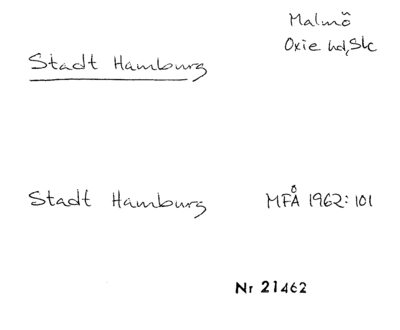 Malmö
Oxie hd, Sk
Stadt Hamburg
Stadt Hamburg MFÅ 1962: 101
Nr 21462